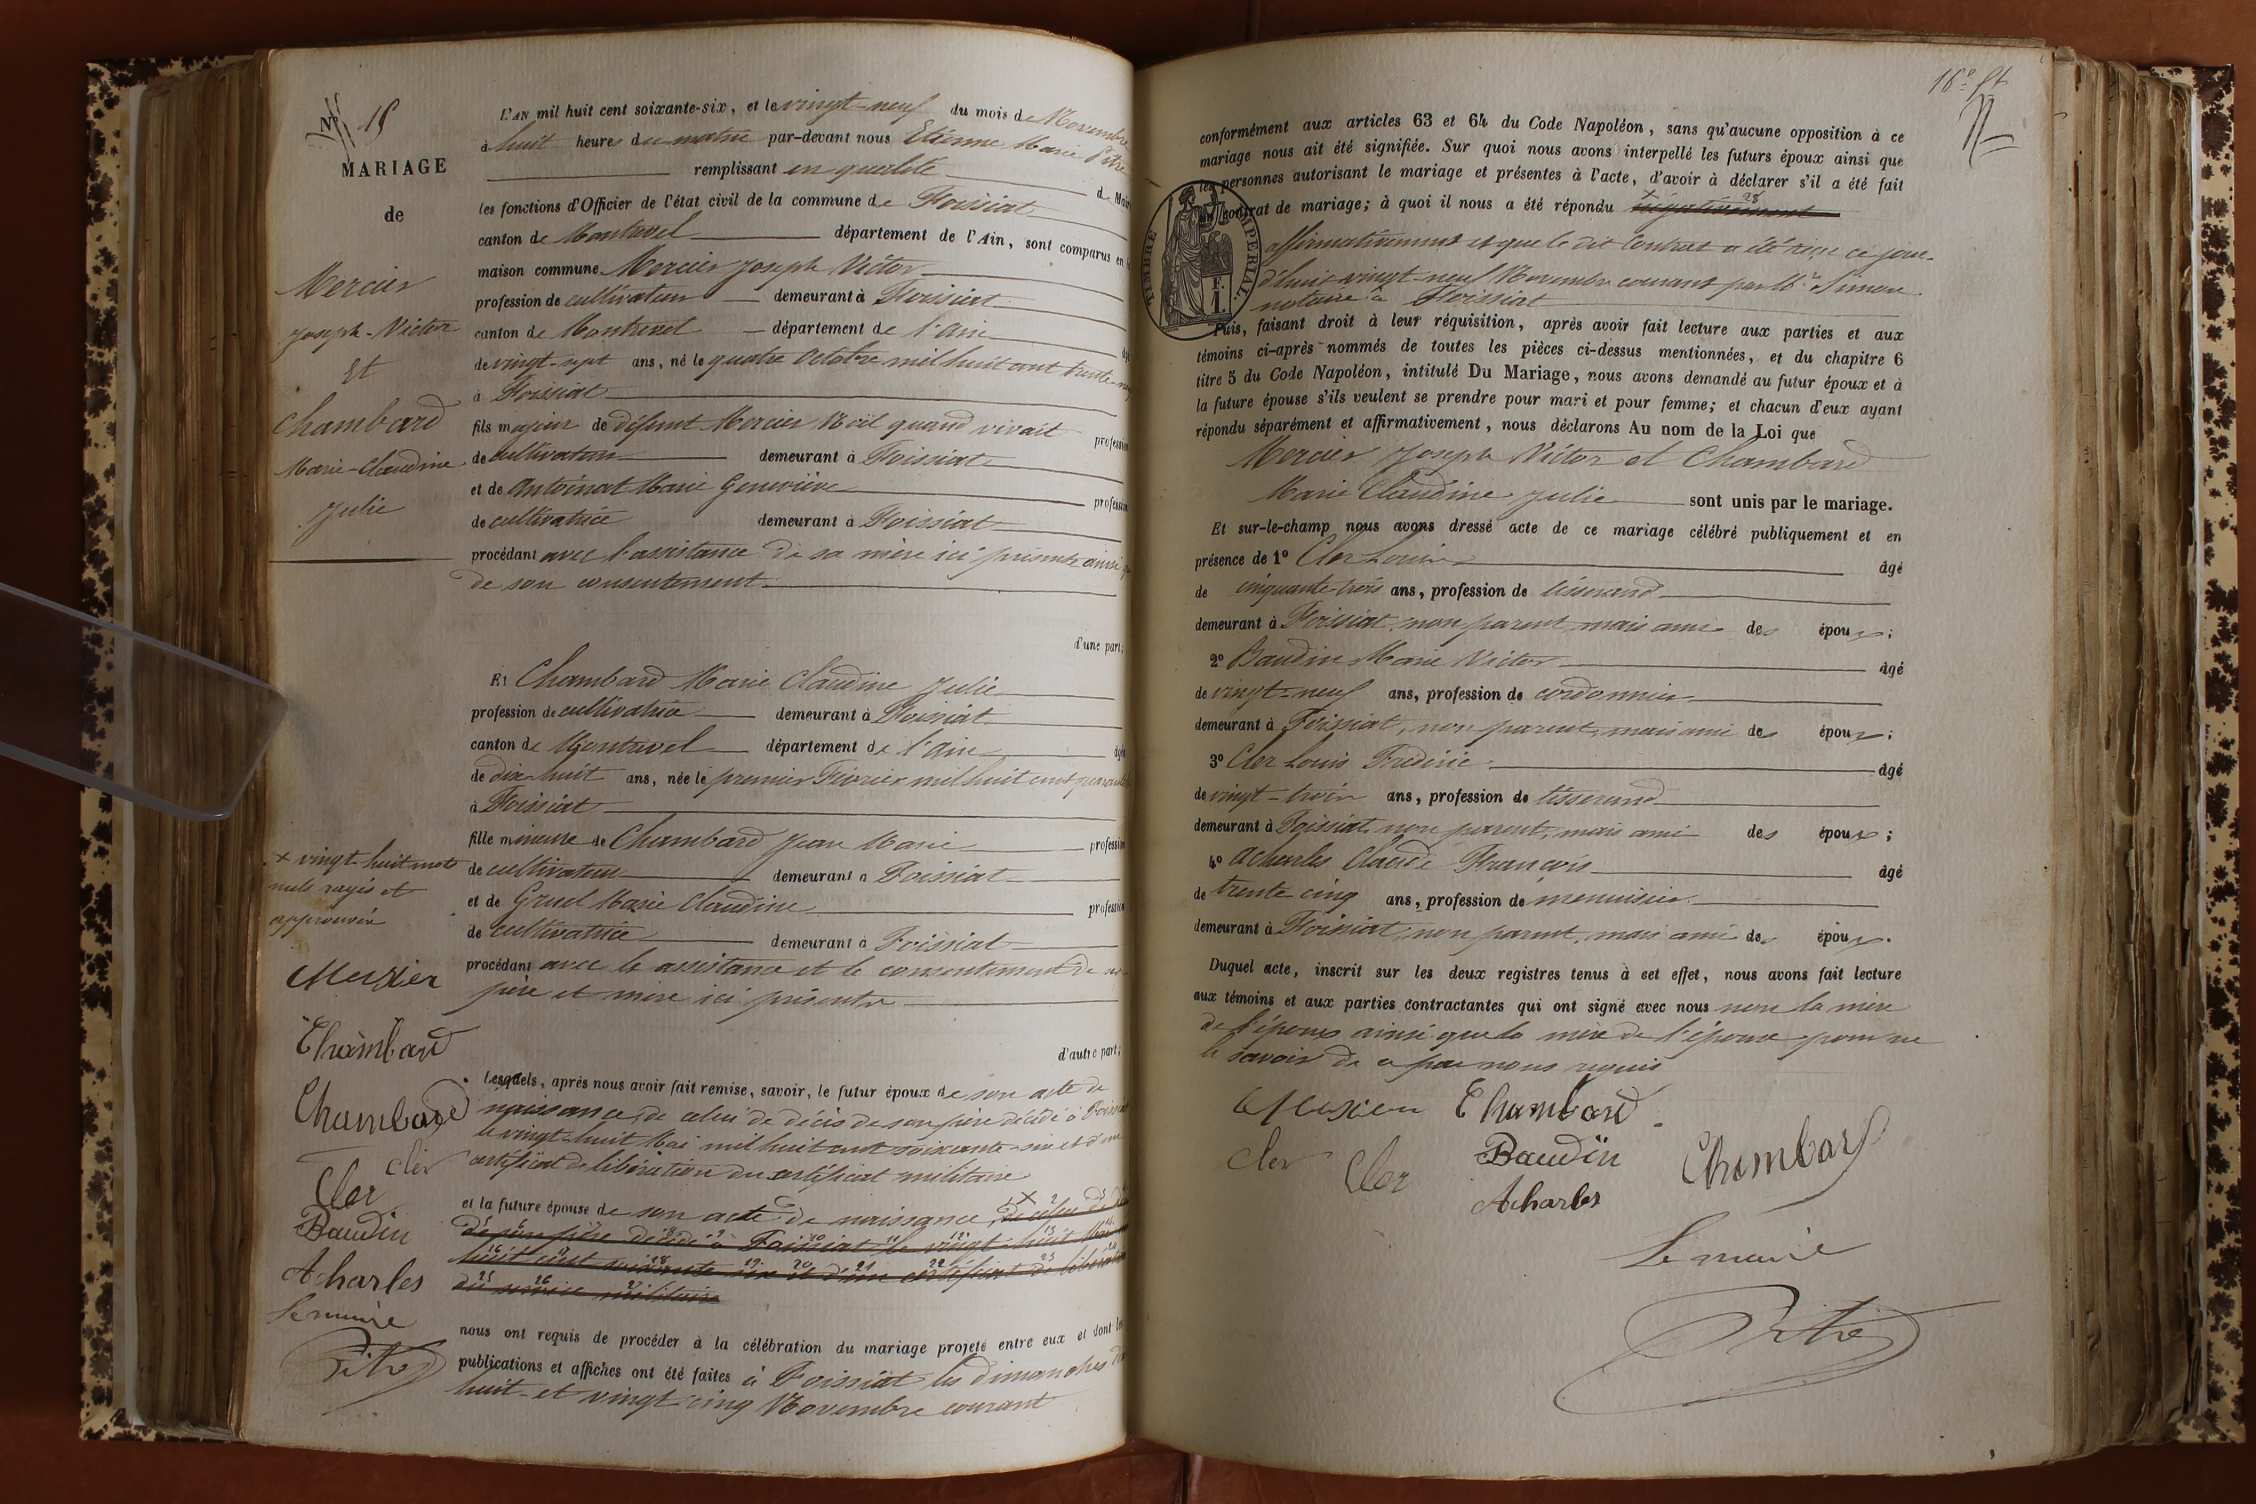 N° 15
MARIAGE
de
Mercier
Joseph-Victor
Et
Chambard
Marie-Claudine
Julie
L'AN mil huit cent soixante-six, et le vingt-neuf du mois de Novembre
à huit heures du matin par-devant nous Etienne Marie Pitre
remplissant en qualité de Maire
les fonctions d'Officier de l'état civil de la commune de Foissiat
canton de Montrevel département de l'Ain, sont comparus en la
maison commune Mercier Joseph Victor
profession de cultivateur demeurant à Foissiat
canton de Montrevel département de l'ain âgé
de vingt-sept ans, né le quatre Octobre mil huit cent trente-neuf
à Foissiat
fils majeur de défunt Mercier Noël quand vivait profession
de cultivateur demeurant à Foissiat
et de Antoinat Marie Geneviève profession
de cultivatrice demeurant à Foissiat
procédant avec l'assistance de sa mère ici présente ainsi que
de son consentement
d'une part;
Et Chambard Marie Claudine Julie
profession de cultivatrice demeurant à Foissiat
canton de Montrevel département de l'ain âgée
de dix-huit ans, née le premier Février mil huit cent quarante
à Foissiat
fille mineure de Chambard Jean Marie profession
de cultivateur demeurant à Foissiat
et de Gruel Marie Claudine profession
de cultivatrice demeurant à Foissiat
procédant avec le assistance et le consentement de ses
père et mère ici présents
d'autre part;
Lesquels, après nous avoir fait remise, savoir, le futur époux de son acte de
naissance, de celui de décès de son père décédé à Foissiat
le vingt-huit Mai mil huit cent soixante-six et d'un
certificat de libération du certificat militaire
et la future épouse de son acte de naissance, de celui de décès
de son père décédé à Foissiat le vingt-huit Mai mil
huit cent soixante six et d'un certificat de libération
du service militaire
nous ont requis de procéder à la célébration du mariage projeté entre eux et dont les
publications et affiches ont été faites à Foissiat les dimanches dix
huit et vingt-cinq Novembre courant
x vingt-huit mots
nuls rayés et
approuvés
Mercier
Chambard
Chambard
Cler
Cler
Baudin
Acharles
Le maire
Pitre
16e ft
conformément aux articles 63 et 64 du Code Napoléon, sans qu'aucune opposition à ce
mariage nous ait été signifiée. Sur quoi nous avons interpellé les futurs époux ainsi que
les personnes autorisant le mariage et présentes à l'acte, d'avoir à déclarer s'il a été fait
un contrat de mariage; à quoi il nous a été répondu négativement
affirmativement et que le dit Contrat a été reçu ce jour-
d'hui vingt-neuf Novembre courant par Me Simon
notaire à Foissiat
TIMBRE IMPERIAL.
F.
1.
Puis, faisant droit à leur réquisition, après avoir fait lecture aux parties et aux
témoins ci-après nommés de toutes les pièces ci-dessus mentionnées, et du chapitre 6
titre 5 du Code Napoléon, intitulé Du Mariage, nous avons demandé au futur époux et à
la future épouse s'ils veulent se prendre pour mari et pour femme; et chacun d'eux ayant
répondu séparément et affirmativement, nous déclarons Au nom de la Loi que
Mercier Joseph Victor et Chambard
Marie Claudine Julie sont unis par le mariage.
Et sur-le-champ nous avons dressé acte de ce mariage célébré publiquement et en
présence de 1° Cler Louis âgé
de cinquante-trois ans, profession de tisserand
demeurant à Foissiat, non parent, mais ami des époux;
2° Baudin Marie Victor âgé
de vingt-neuf ans, profession de cordonnier
demeurant à Foissiat, non parent, mais ami des époux;
3° Cler Louis Frédéric âgé
de vingt-trois ans, profession de tisserand
demeurant à Foissiat, non parent, mais ami des époux;
4° Acharles Claude François âgé
de trente cinq ans, profession de menuisier
demeurant à Foissiat, non parent, mais ami des époux.
Duquel acte, inscrit sur les deux registres tenus à cet effet, nous avons fait lecture
aux témoins et aux parties contractantes qui ont signé avec nous non la mère
de l'époux ainsi que la mère de l'épouse pour ne
le savoir de ce par nous requis
Mercier Chambard
Cler Cler Baudin Chambard
Acharles
Le maire
Pitre